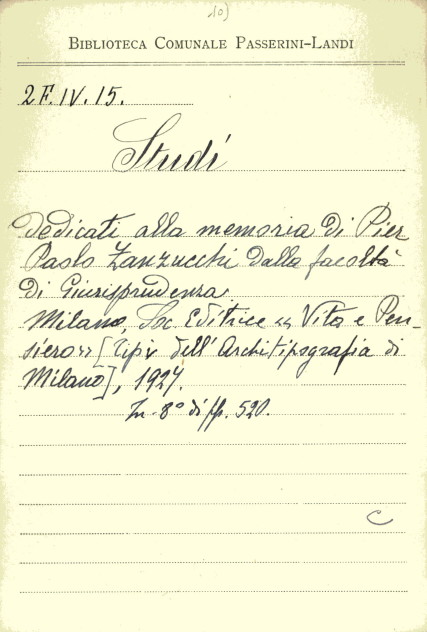 10)
BIBLIOTECA COMUNALE PASSERINI-LANDI
2F.IV.15.
Studi
Dedicati alla memoria di Pier
Paolo Zanzucchi dalla facoltà
di Giurisprudenza
Milano, Soc. Editrice «Vita e Pen-
siero» [Tip. dell'Architipografia di
Milano], 1927.
In-8° di pp. 520.
C